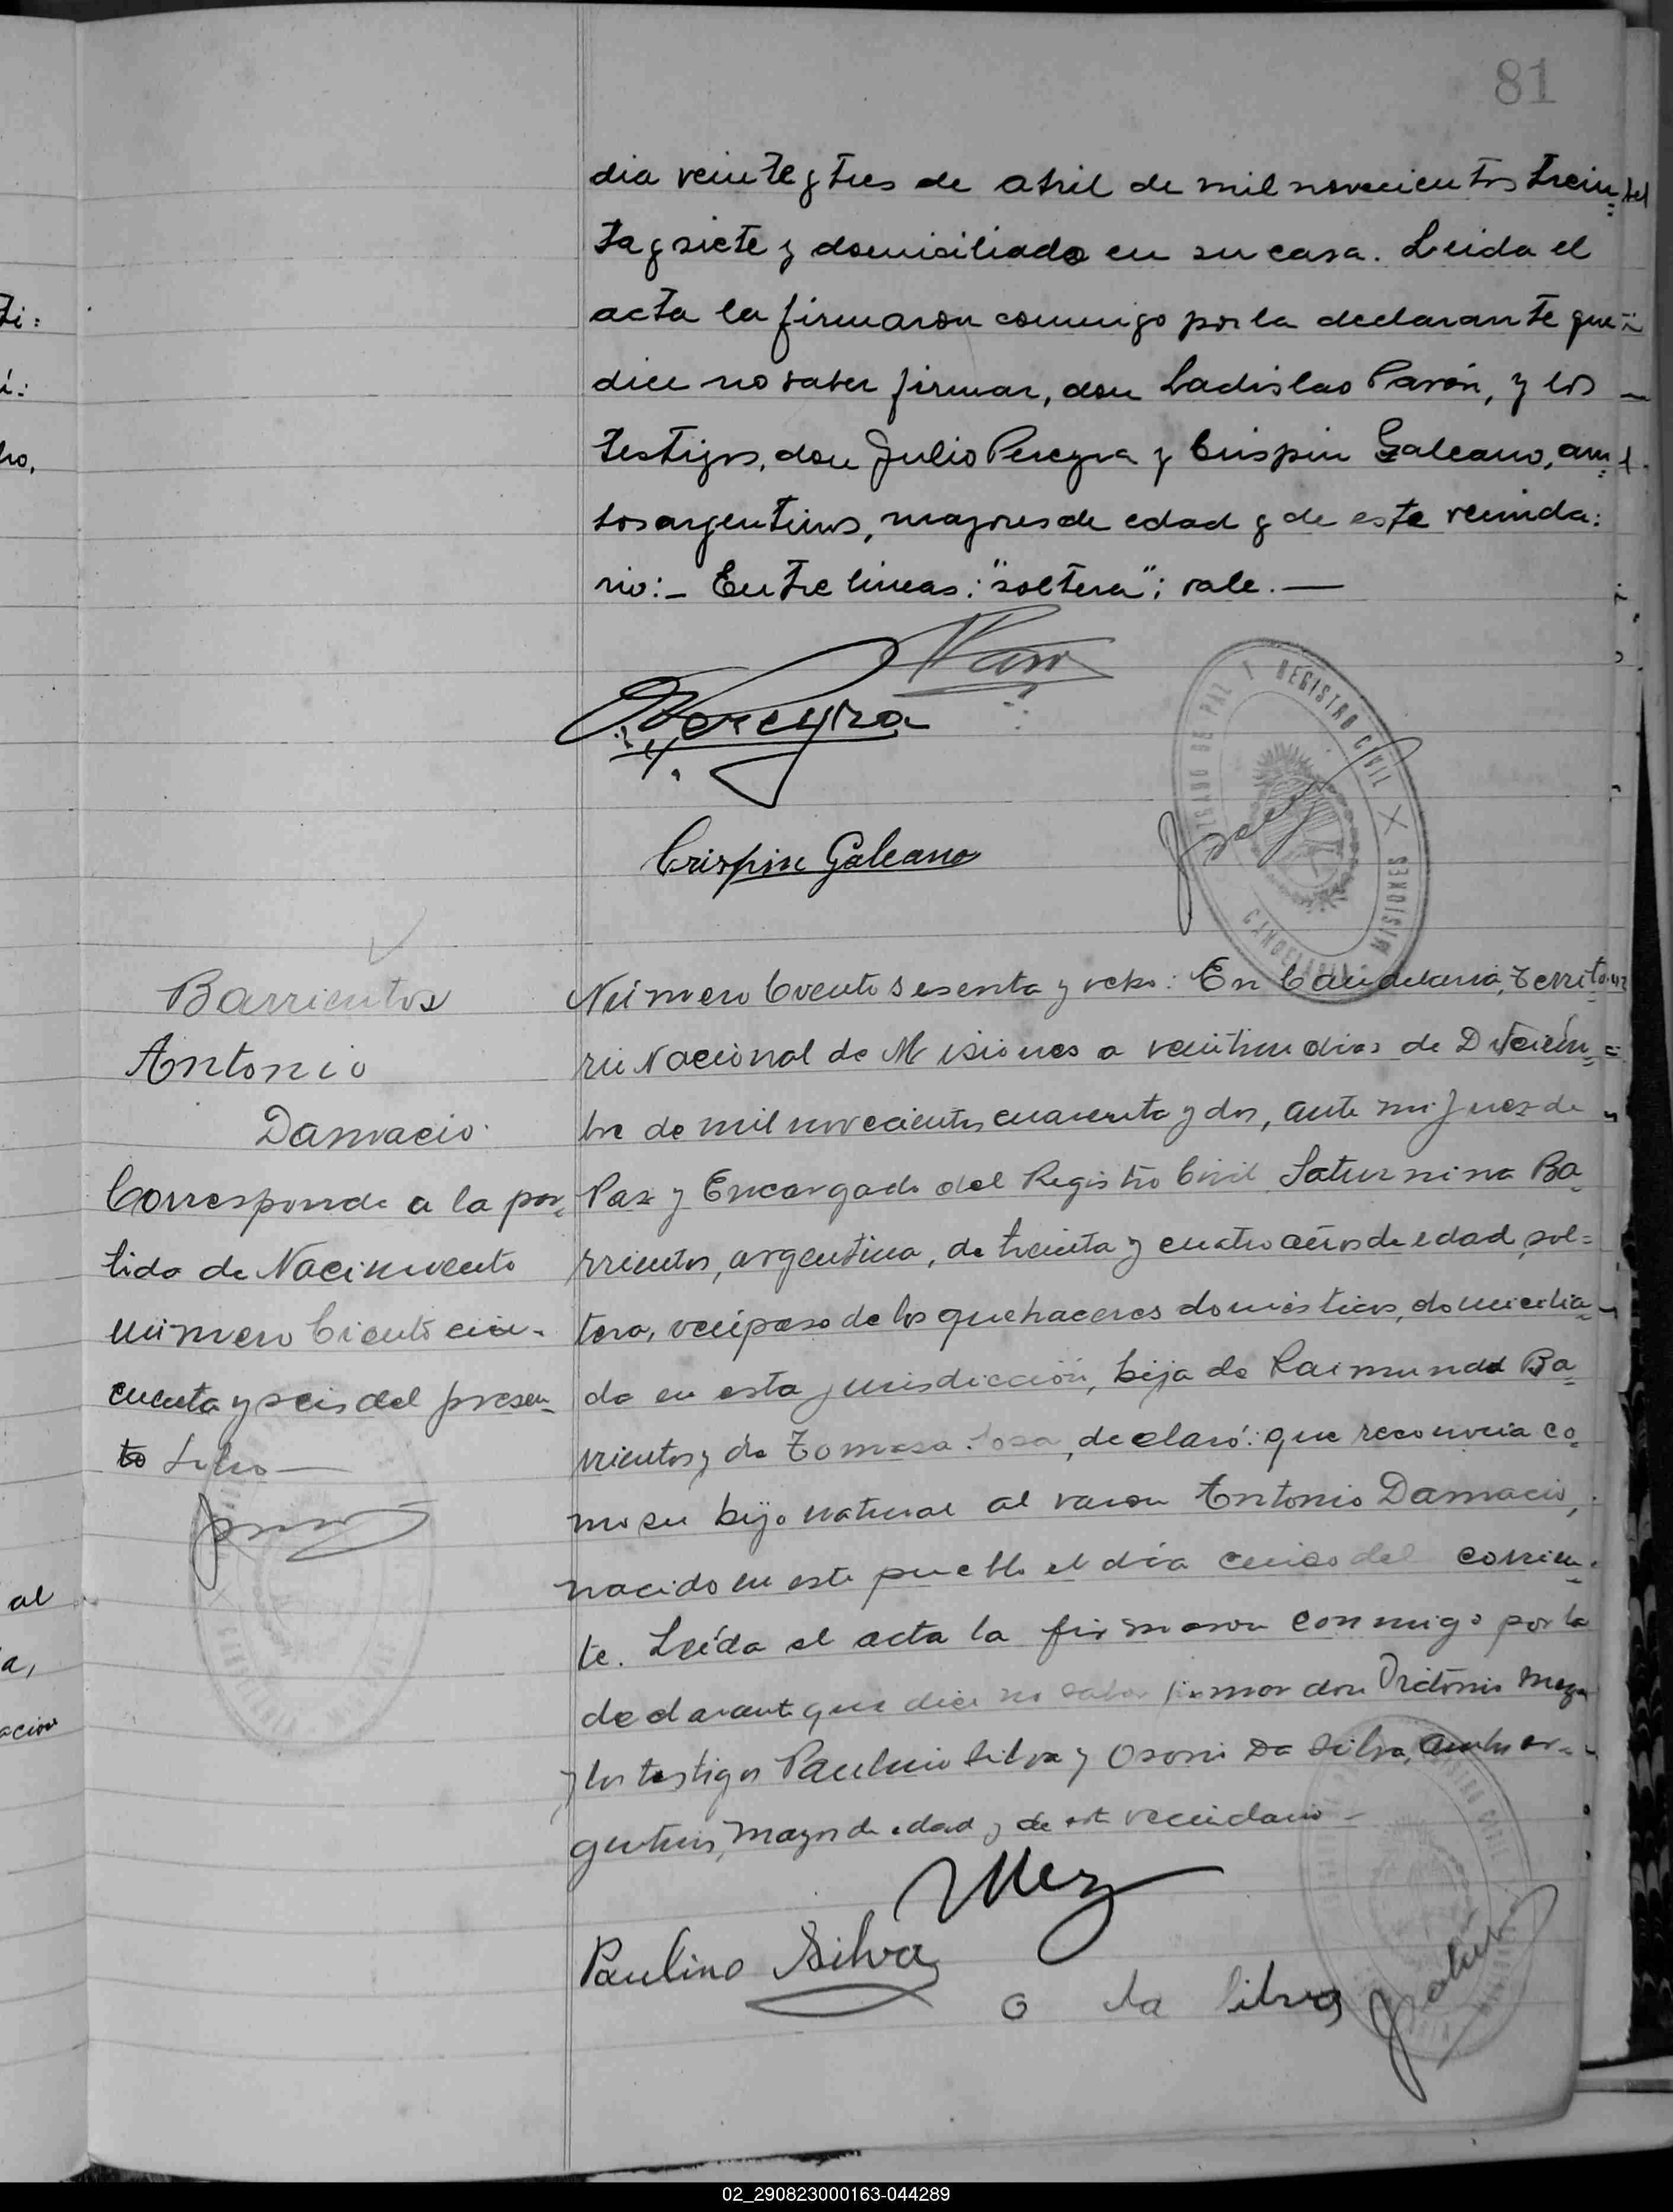 81
dia veinte y tres de abril de mil novecientos trein=
ta y siete y domiciliado en su casa. Leida el
acta la firmaron conmigo por la declarante que
dice no saber firmar, don Ladislao Pavón, y los
testigos, don Julio Pereyra y Crispin Galeano, am=
bos argentinos, mayores de edad y de este vecinda:
rio:_ Entre lineas: "soltera"; vale.—
Pereyra
REGISTRO CIVIL
MISIONES
CANDELARIA
Crispin Galeano
Barrientos
Antonio
Damacio
Corresponde a la par=
tida de Nacimiento
número Ciento cin-
cuenta y seis del presen=
te Libro—
Número Ciento sesenta y ocho: En Candelaria, Territo
rio Nacional de Misiones a veintiun dias de Diciem=
bre de mil novecientos cuarenta y dos, ante mi Juez de
Paz y Encargado del Registro Civil Saturnina Ba=
rrientos, argentina, de treinta y cuatro años de edad, sol=
tera, de los quehaceres domésticos, domicilia=
da en esta jurisdicción, hija de Raimundo Ba=
rrientos y de Tomasa Sosa, declaró: que reconocia co=
mo su hijo natural al varon Antonio Damacio,
nacido en este pueblo el día cinco del corrien=
te. Leída el acta la firmaron conmigo por la
declarante que dice no saber firmar don Meza
y los testigos Paulino Silva y Da Silva, ambos ar=
gentinos, mayor de edad y de este vecindario—
Paulino Silva
O da Silva
02_290823000163-044289